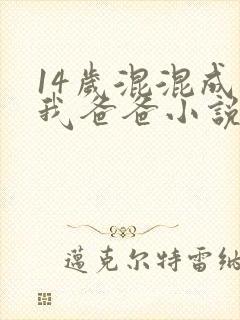 14歲混混成
我爸爸小說
邁克尔特雷納